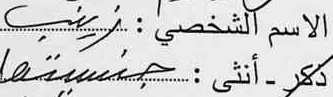 الاسم الشخصي : زينب
ذكر - أنثى : جنسيتها